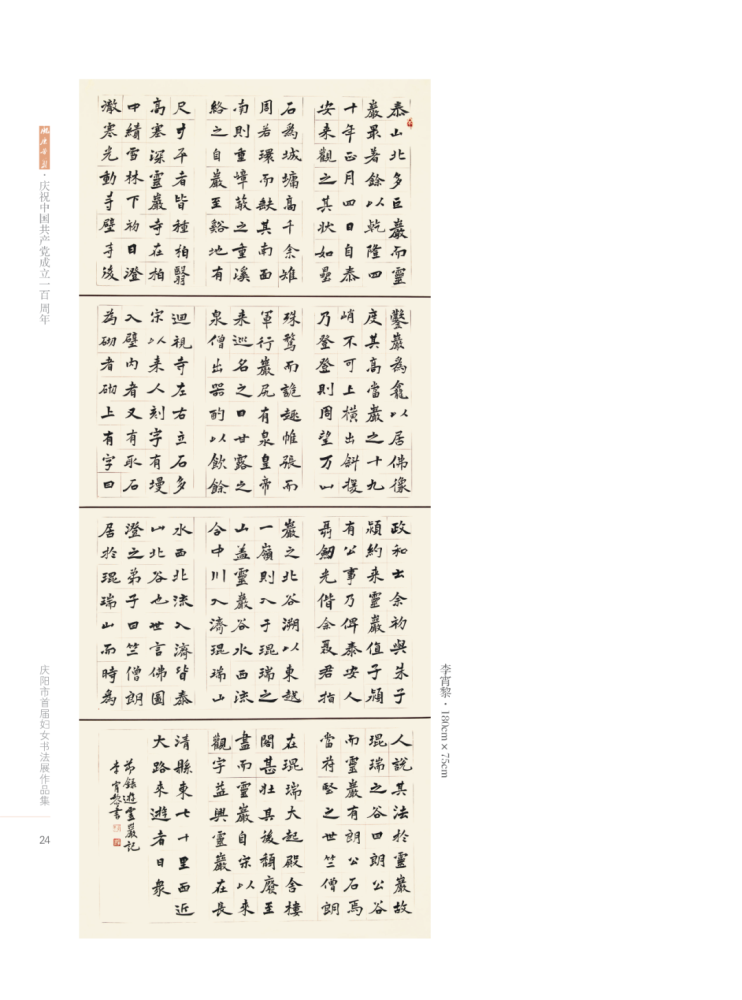 泰山北多巨巖而靈
巖最著餘以乾隆四
十年正月四日自泰
安来觀之其狀如壘
石為城墉高千余雉
周若環而缺其南面
南則重嶂蔽之重溪
絡之自巖至谿地有
尺寸平者皆種柏翳
高塞深靈巖寺在柏
中績雪林下初日澄
澈寒光動寺壁寺後
鑿巖為龕以居佛像
度其高當巖之十九
峭不可上橫出斜援
乃登登則周望万山
殊騖而詭趣帷張而
軍行巖尻有泉皇帝
来巡名之曰甘露之
泉僧出器酌以飲餘
迴視寺左右立石多
宋以来人刻字有墁
入壁内者又有取石
為砌者砌上有字曰
政和云余初與朱子
潁約来靈巖值子潁
有公事乃俾泰安人
聶劒光偕余聶君指
巖之北谷溯以東越
一嶺則入于琨瑞之
山蓋靈巖谷水西流
合中川入濟琨瑞山
水西北流入濟皆泰
山北谷也世言佛圖
澄之弟子曰竺僧朗
居於琨瑞山而時為
人說其法於靈巖故
琨瑞之谷曰朗公谷
而靈巖有朗公石焉
當苻堅之世竺僧朗
在琨瑞大起殿舍樓
閣甚壯其後頹廢至
盡而靈巖自宋以来
觀宇益興靈巖在長
清縣東七十里西近
大路来遊者日衆
節録遊靈巖記
李宵黎書
李宵黎·180cm×75cm
·庆祝中国共产党成立一百周年
庆阳市首届妇女书法展作品集
24